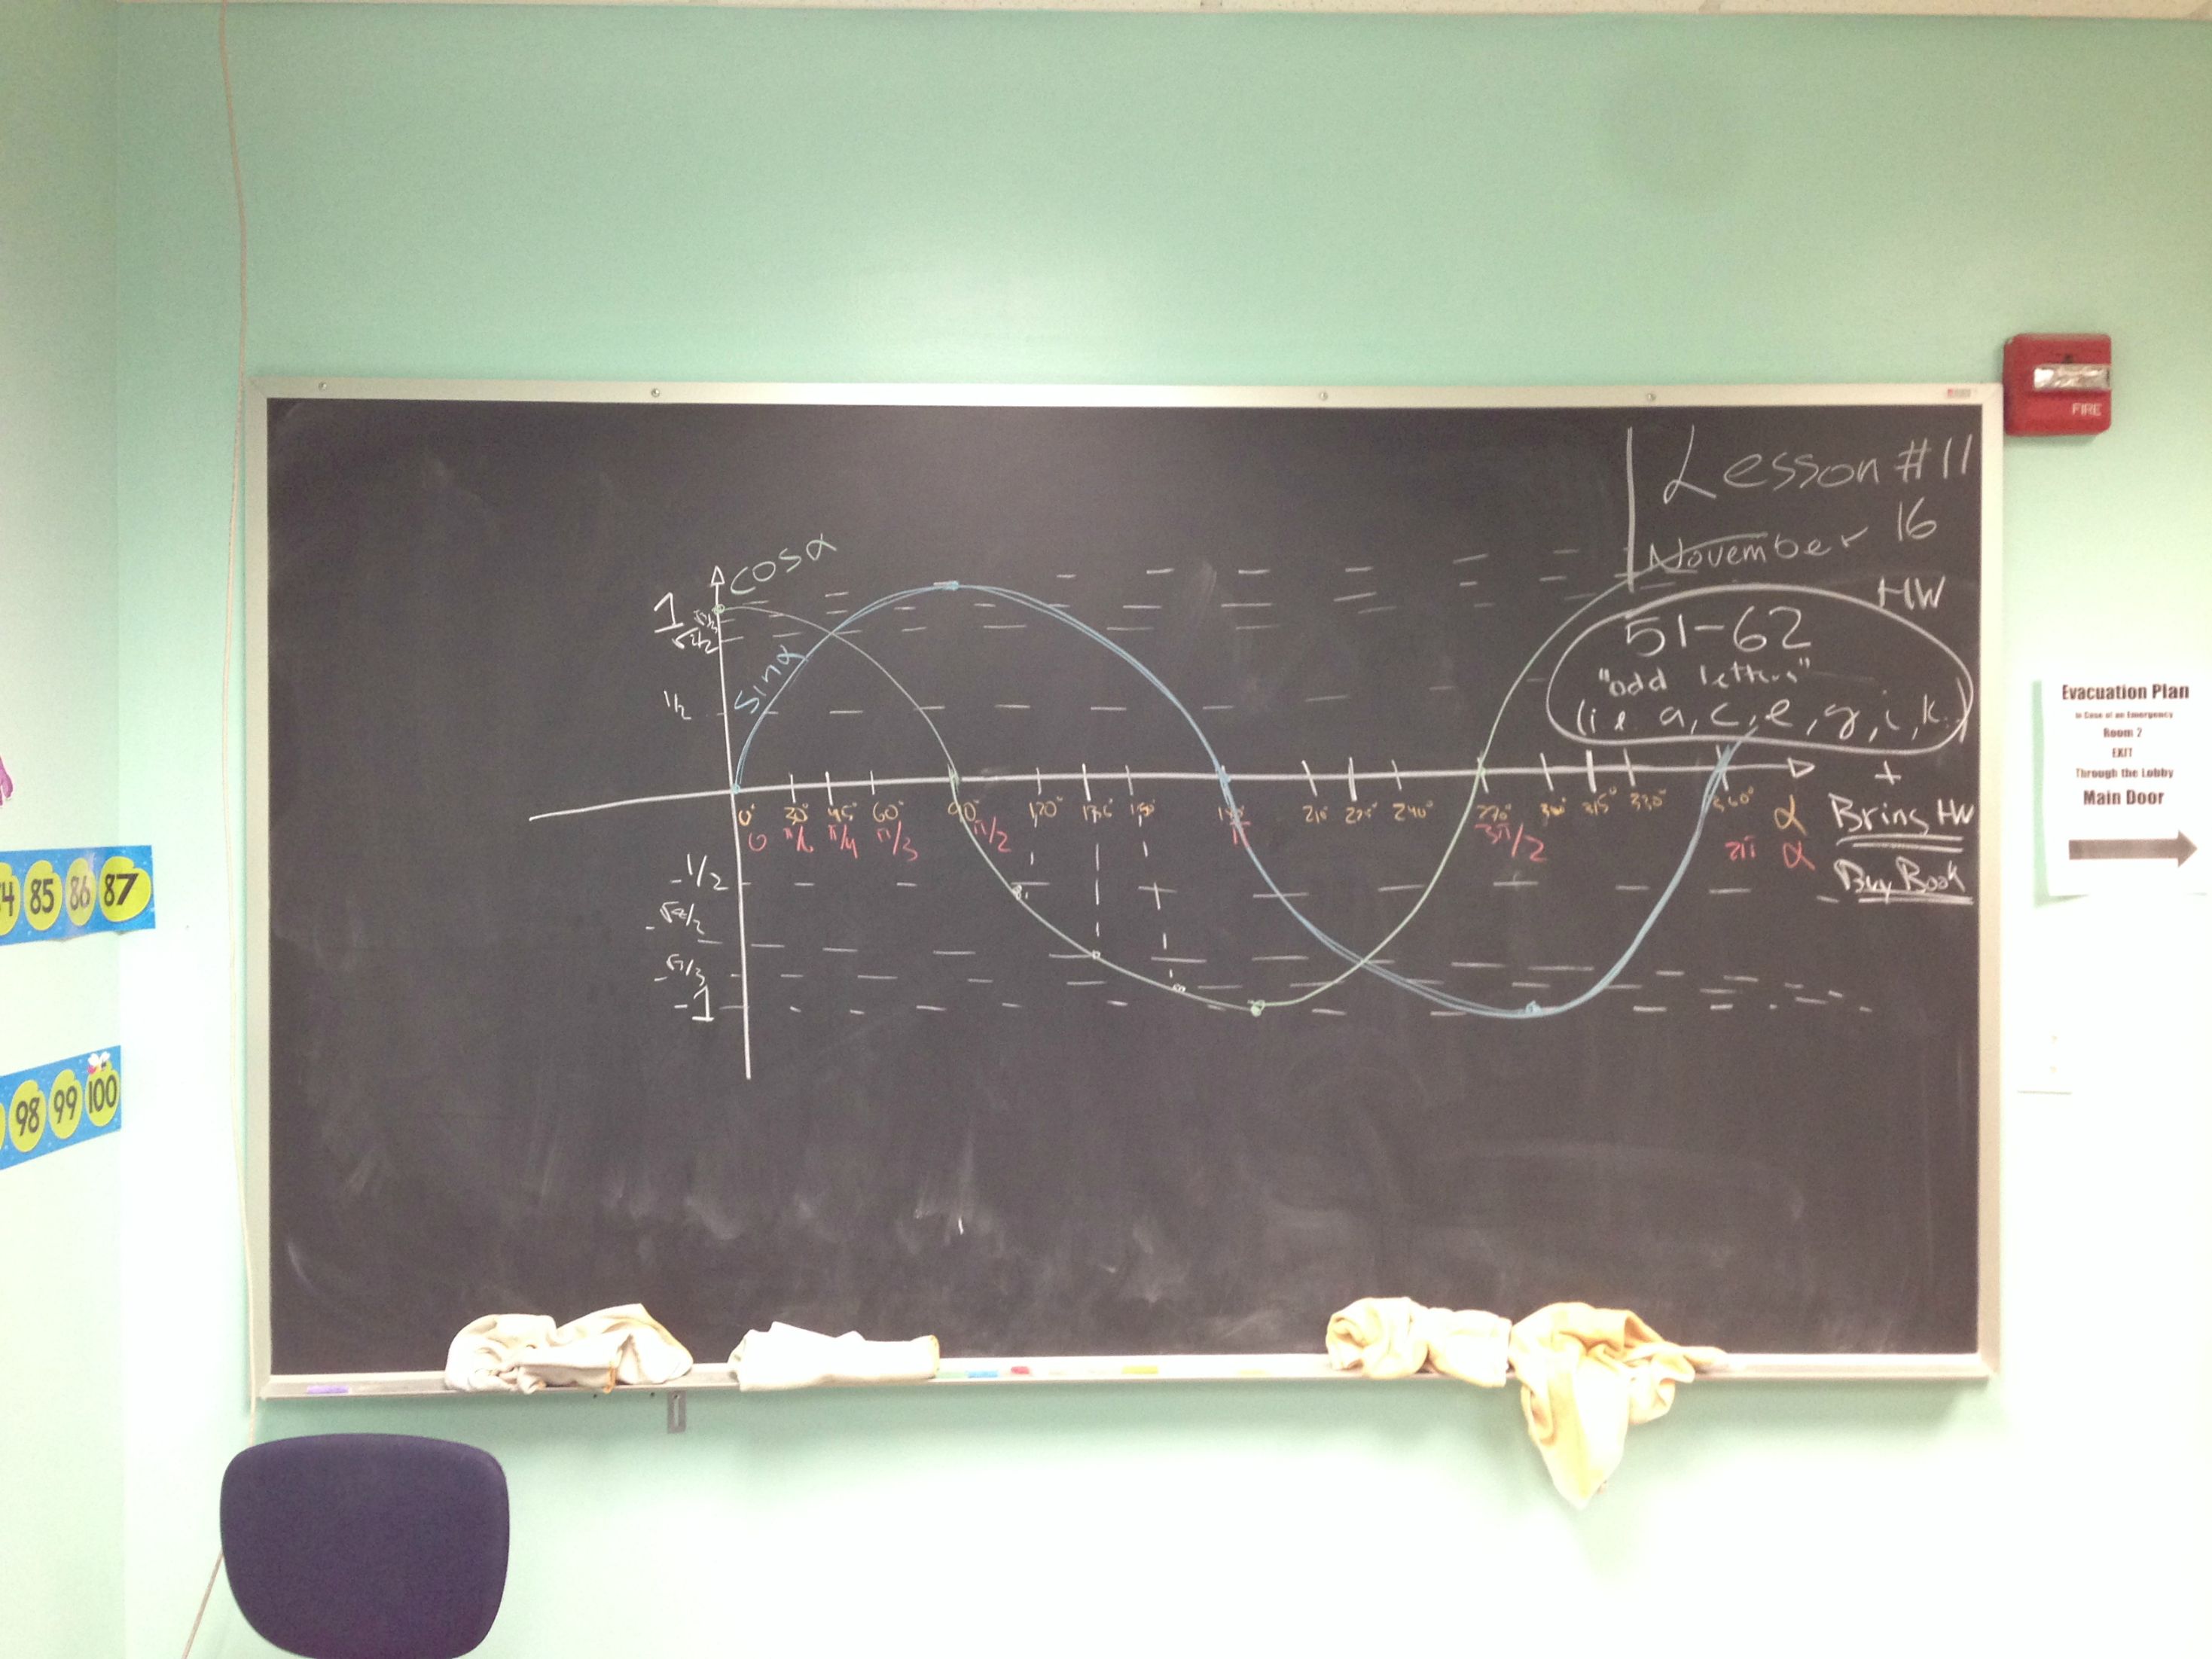 Lesson #11
November 16
HW
51-62
"odd letters"
(i.e. a, c, e, g, i, k
+
Bring HW
Buy Book
cosα
sinα
1
√2/2
1/2
0° 30° 45° 60° 90° 120° 135° 150° 180° 210° 225° 240° 270° 300° 315° 330° 360° α
0 π/6 π/4 π/3 π/2 π 3π/2 2π α
-1/2
-√2/2
-√3
-1
FIRE
Evacuation Plan
In Case of an Emergency
Room 2
EXIT
Through the Lobby
Main Door
85 86 87
98 99 100